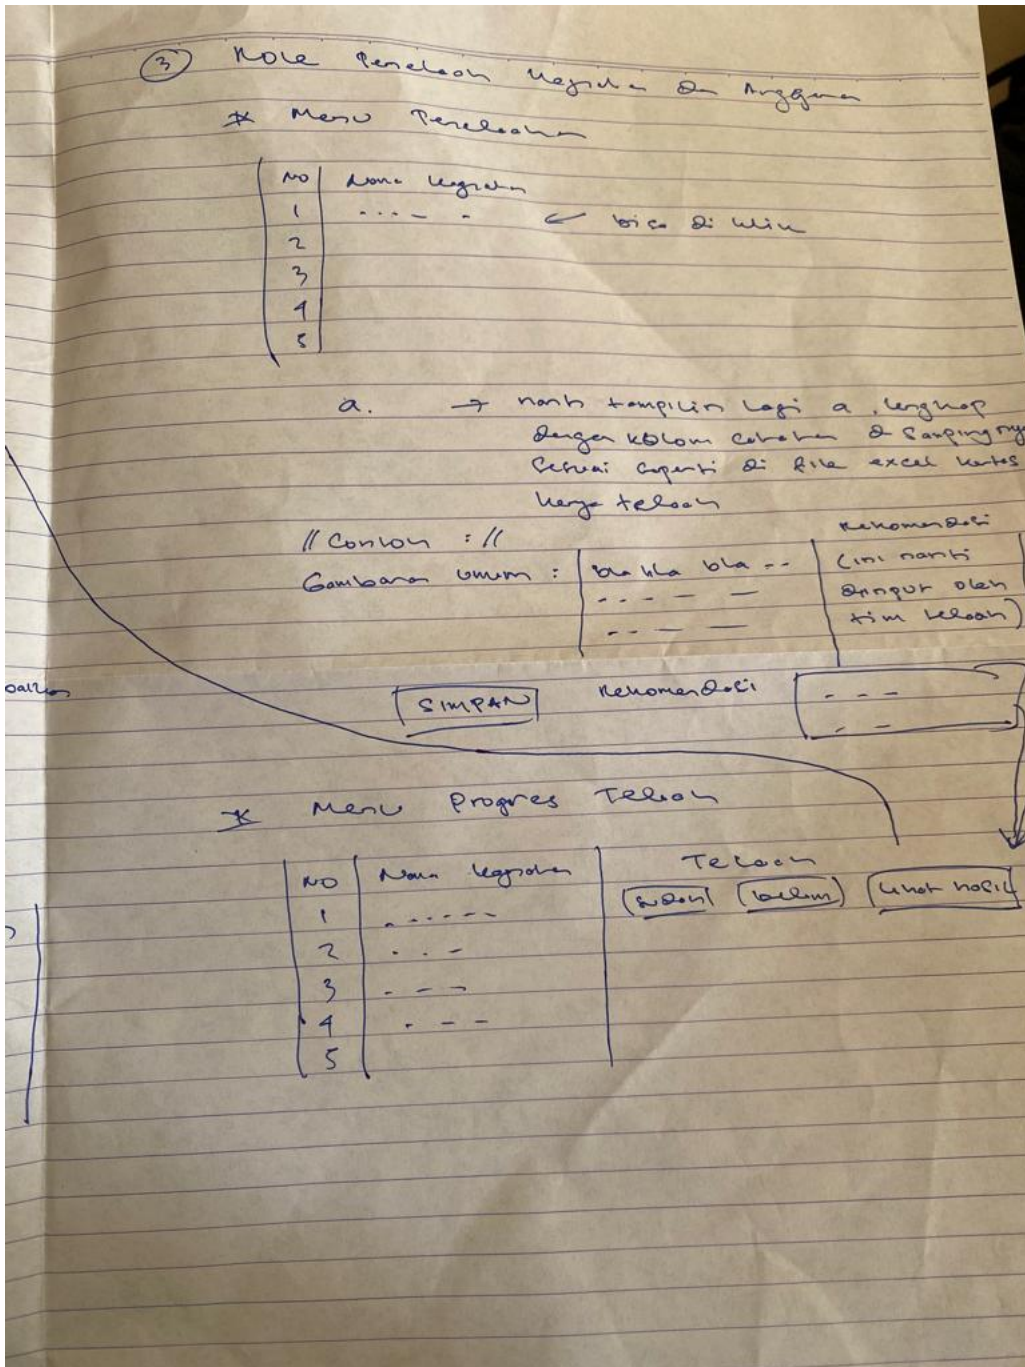 3 Role Penelaah Kegiatan dan Anggaran
* Menu Penelaahan
NO Nama Kegiatan
1 ← bisa di klik
2
3
4
5
a. → nanti tampilin lagi a, lengkap
dengan kolom catatan di sampingnya
sesuai seperti di file excel kertas
kerja telaah
// Contoh : //
Rekomendasi
Gambaran Umum : bla bla bla -- (ini nanti
diinput oleh
tim telaah)
SIMPAN Rekomendasi
* Menu Progres Telaah
NO Nama Kegiatan Telaah
1 sudah belum lihat hasil
2
3
4
5